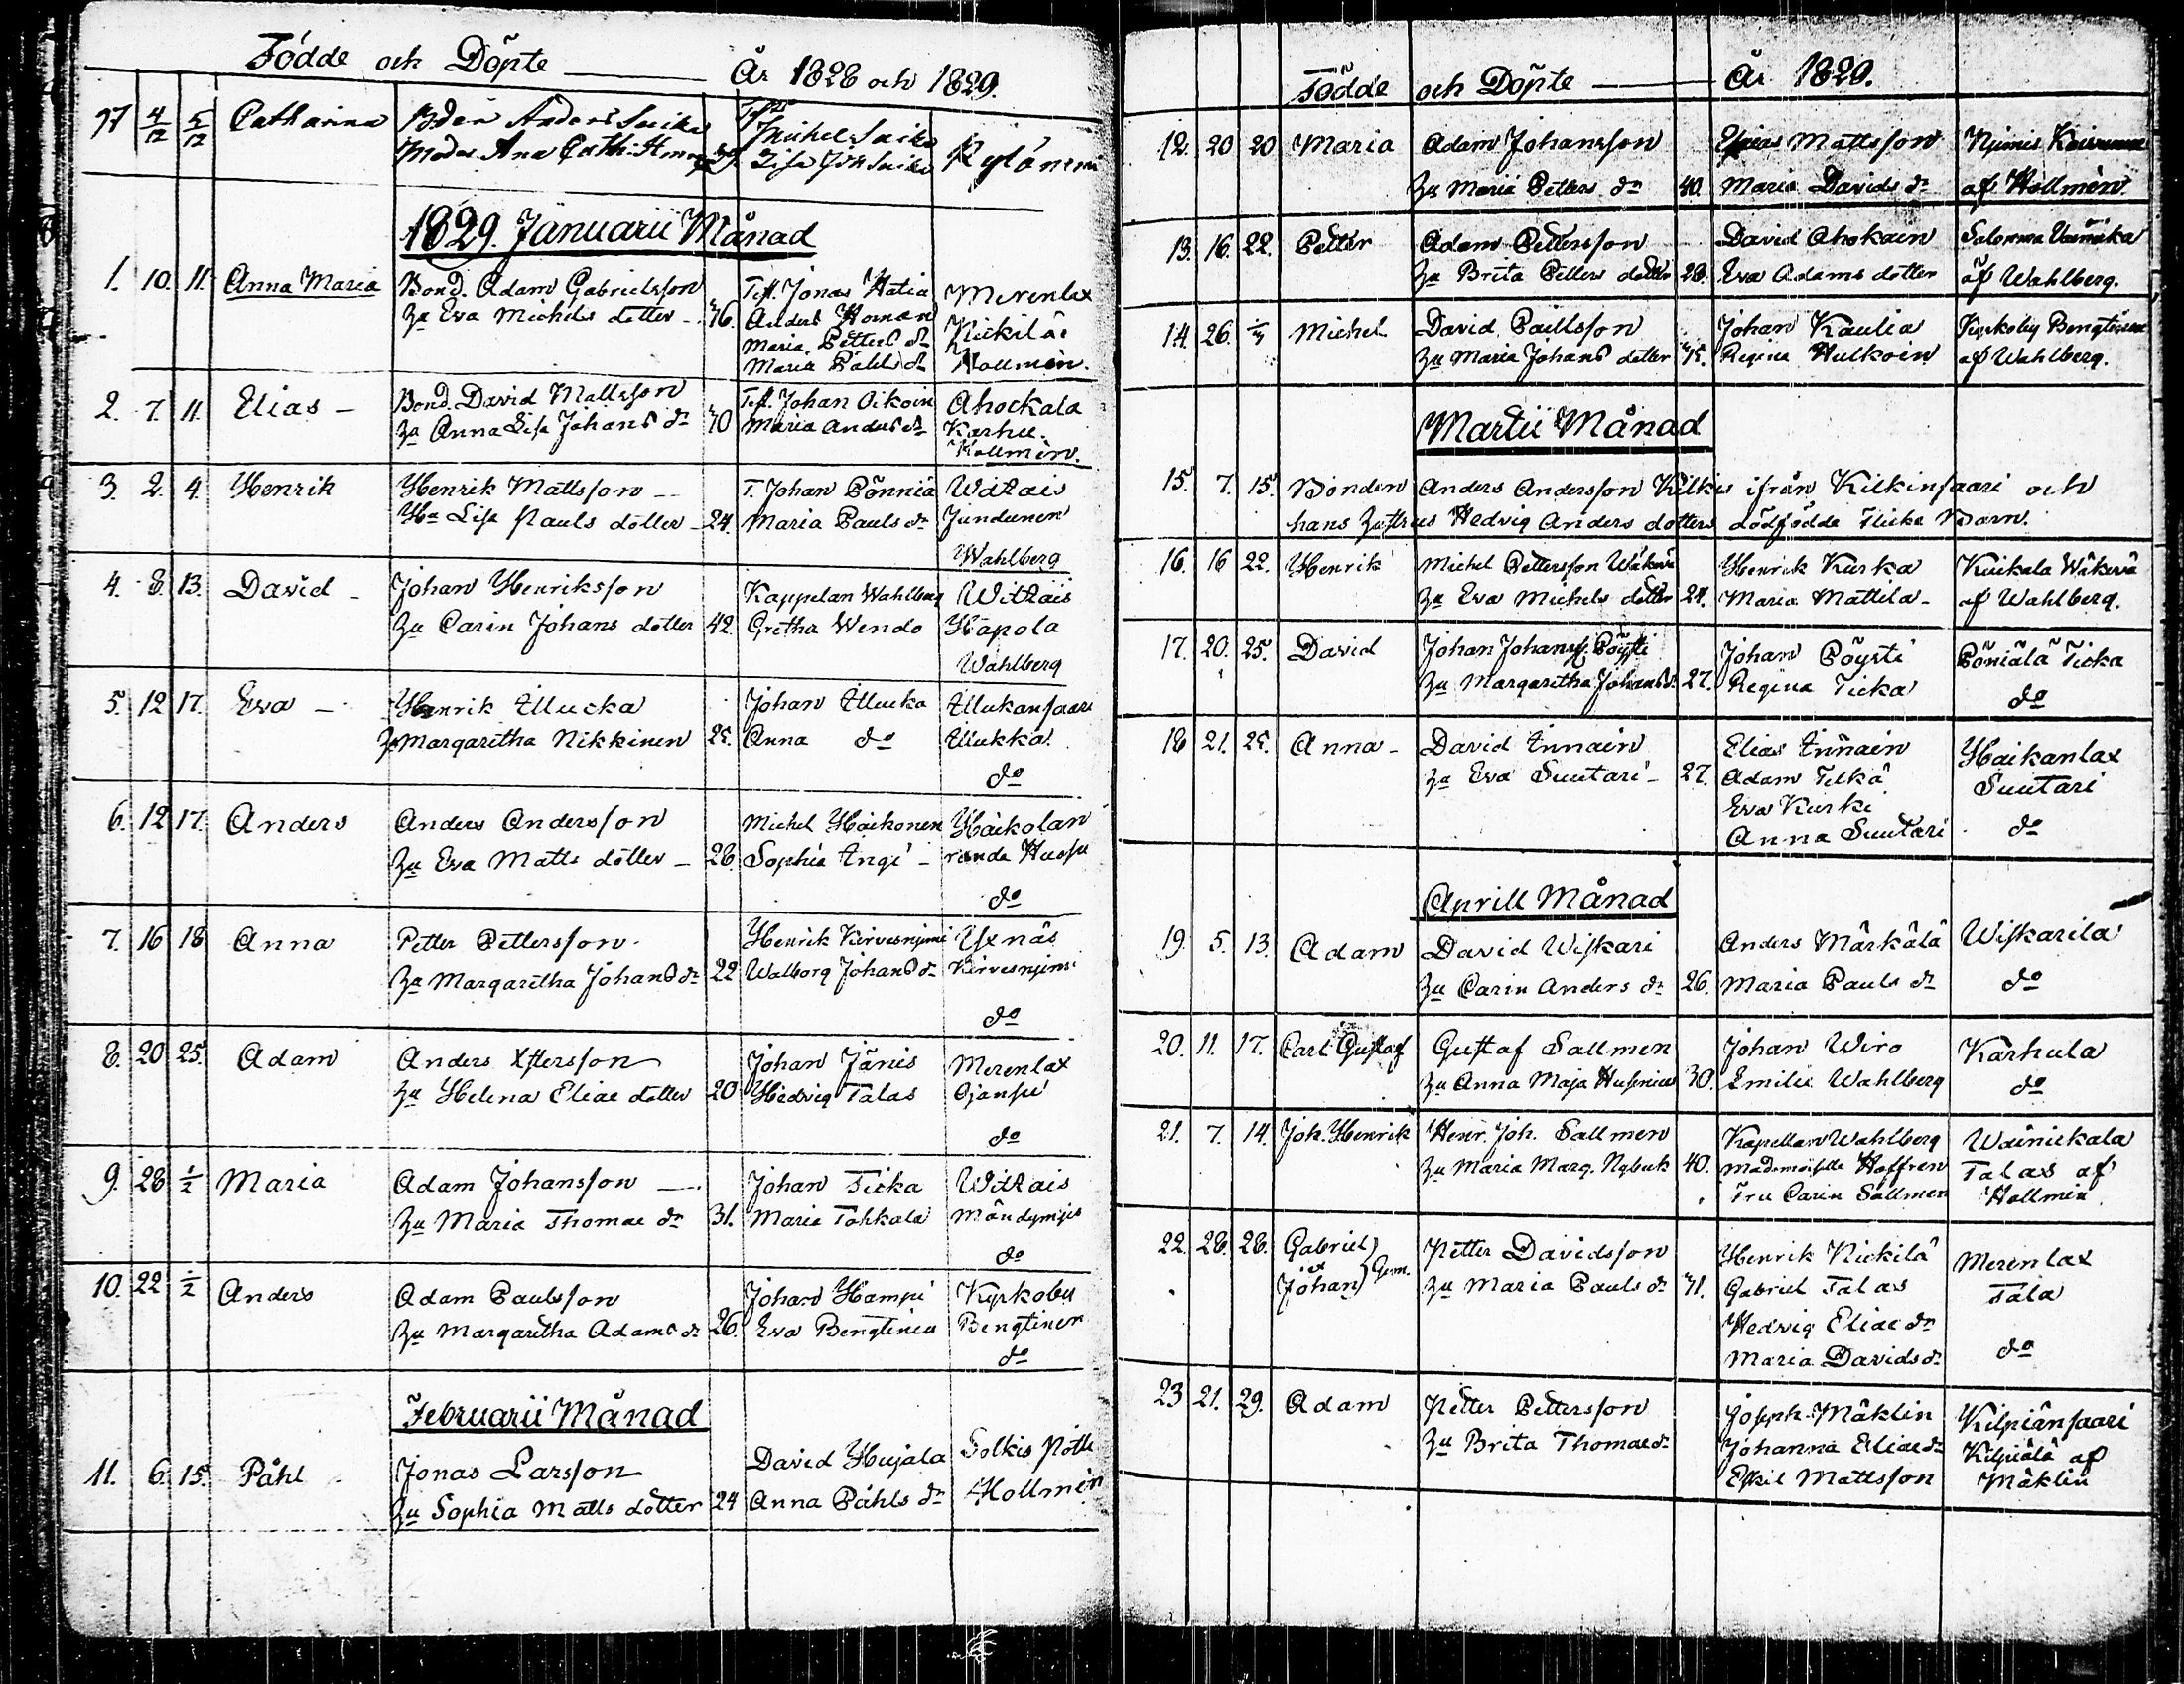 Födde och Döpte —— År 1828 och 1829.
17 4/12 5/12 Catharina Bder Anders Michel
Moder Ana Cath: Lisa
1829. Januarii Månad
1. 10. 11. Anna Maria Bond. Adam Gabrielsson Test. Jonas Hatia Merenlax
Hu Eva Michels dotter - 36. Anders Homan Nickilä
Maria Petters dr
Maria Påhls dr Hollmén.
2. 7. 11. Elias - Bond. David Mattsson Test. Johan Oikoin Ahockala
Hu Anna Lisa Johans dr 30 Maria Anders dr Karhu
Hollmén.
3. 2. 4. Henrik Henrik Mattsson - T. Johan Pönniä Witkais
Hu Lisa Pauls dotter - 24. Maria Pauls dr Jundunen
Wahlberg
4. 8. 13. David - Johan Henriksson Kappelan Wahlberg Witkais
Hu Carin Johans dotter 42. Gretha Wendo Hapola
Wahlberg
5. 12 17. Eva - Henrik Illucka Johan Illucka Illukansaari
Hu Margaretha Nikkinen 25. Anna do Illukka.
do
6. 12 17. Anders Anders Andersson Michel Haikonen Haikolan
Hu Eva Matts dotter - 28. Sophia Ingi - randa Huosu
do
7. 16 18 Anna Petter Pettersson. Henrik Kirvesnjemi Yxnäs
Hu Margaretha Johans dr 22 Walborg Johans dr Kirvesnjemi
do
8. 20 25. Adam Anders Xstersson Johan Jänis Merenlax
Hu Helena Eliae dotter 20 Hedvig Talas Ojansu
do
9. 28 1/2 Maria Adam Johansson - Johan Ticka Witkais
Hu Maria Thomae dr 31. Maria Tahkala Mändymjes
do
10. 22 1/2 Anders Adam Paulsson Johan Hampu Kyrkoby
Hu Margaretha Adams dr 26. Eva Bengtinen Bengtinen
do
Februarii Månad
11. 6. 15. Påhl Jonas Larsson David Hujala Solkis
Hu Sophia Matts dotter 24 Anna Påhls dr Hollmén
Födde och Döpte —— År 1829.
12. 20 20 Maria Adam Johansson Esaias Mattsson Njemis
Hu Maria Petters dr 40. Maria Davids dr af Hollmén.
13. 16. 22. Petter Adam Pettersson David Ahokain
Hu Brita Petters dotter 28. Eva Adams dotter af Wahlberg.
14. 26. 1/3 Michel David Paulsson Johan Kaulia Kyrkoby Bengtinen
Hu Maria Johans dotter 35. Regina Hulkoin af Wahlberg.
Martii Månad
15. 7. 15. Bonden Anders Andersson Kilkis ifrån Kilkinsaari och
hans Hustrus Hedvig Anders dotters dödfödde Flicke Barn.
16. 16 22. Henrik Michel Pettersson Wäkevä Henrik Kurka Kuikala Wäkevä
Hu Eva Michels dotter 24. Maria Mattila - af Wahlberg.
17. 20. 25. David Johan Johanss. Pöysti Johan Pöysti Pöniälä Ticka
Hu Margaretha Johans dr 27. Regina Ticka do
18 21. 25. Anna - David Innain Elias Innain Haikanlax
Hu Eva Suutari - 27. Adam Telkä Suutari
Eva Kurki
Anna Suutari do
Aprill Månad
19. 5. 13. Adam David Wiskari Anders Märkälä Wiskarila
Hu Carin Anders dr 26. Maria Pauls dr do
20. 11. 17. Carl Gustaf Gustaf Sallmen Johan Wiro Karhula
Hu Anna Maja 30. Emilie Wahlberg do
21. 7. 14. Joh. Henrik Henr. Joh. Sallmen Kapellan Wahlberg Wainickala
Hu Maria Marg. Nybuk 40. Mademoiselle Hoffren Talas af
Fru Carin Sallmen Hollmén
22. 28. 28. Gabriel Petter Davidsson Henrik Nickilä Merenlax
et Johan Gem. Hu Maria Pauls dr 31. Gabriel Talas Tala
Hedvig Eliae dr
Maria Davids dr do
23 21. 29. Adam Petter Pettersson Joseph Mäklin Kilpiänsaari
Hu Brita Thomae dr Johanna Eliae dr Kilpiälä af
Eskil Mattsson Mäklin